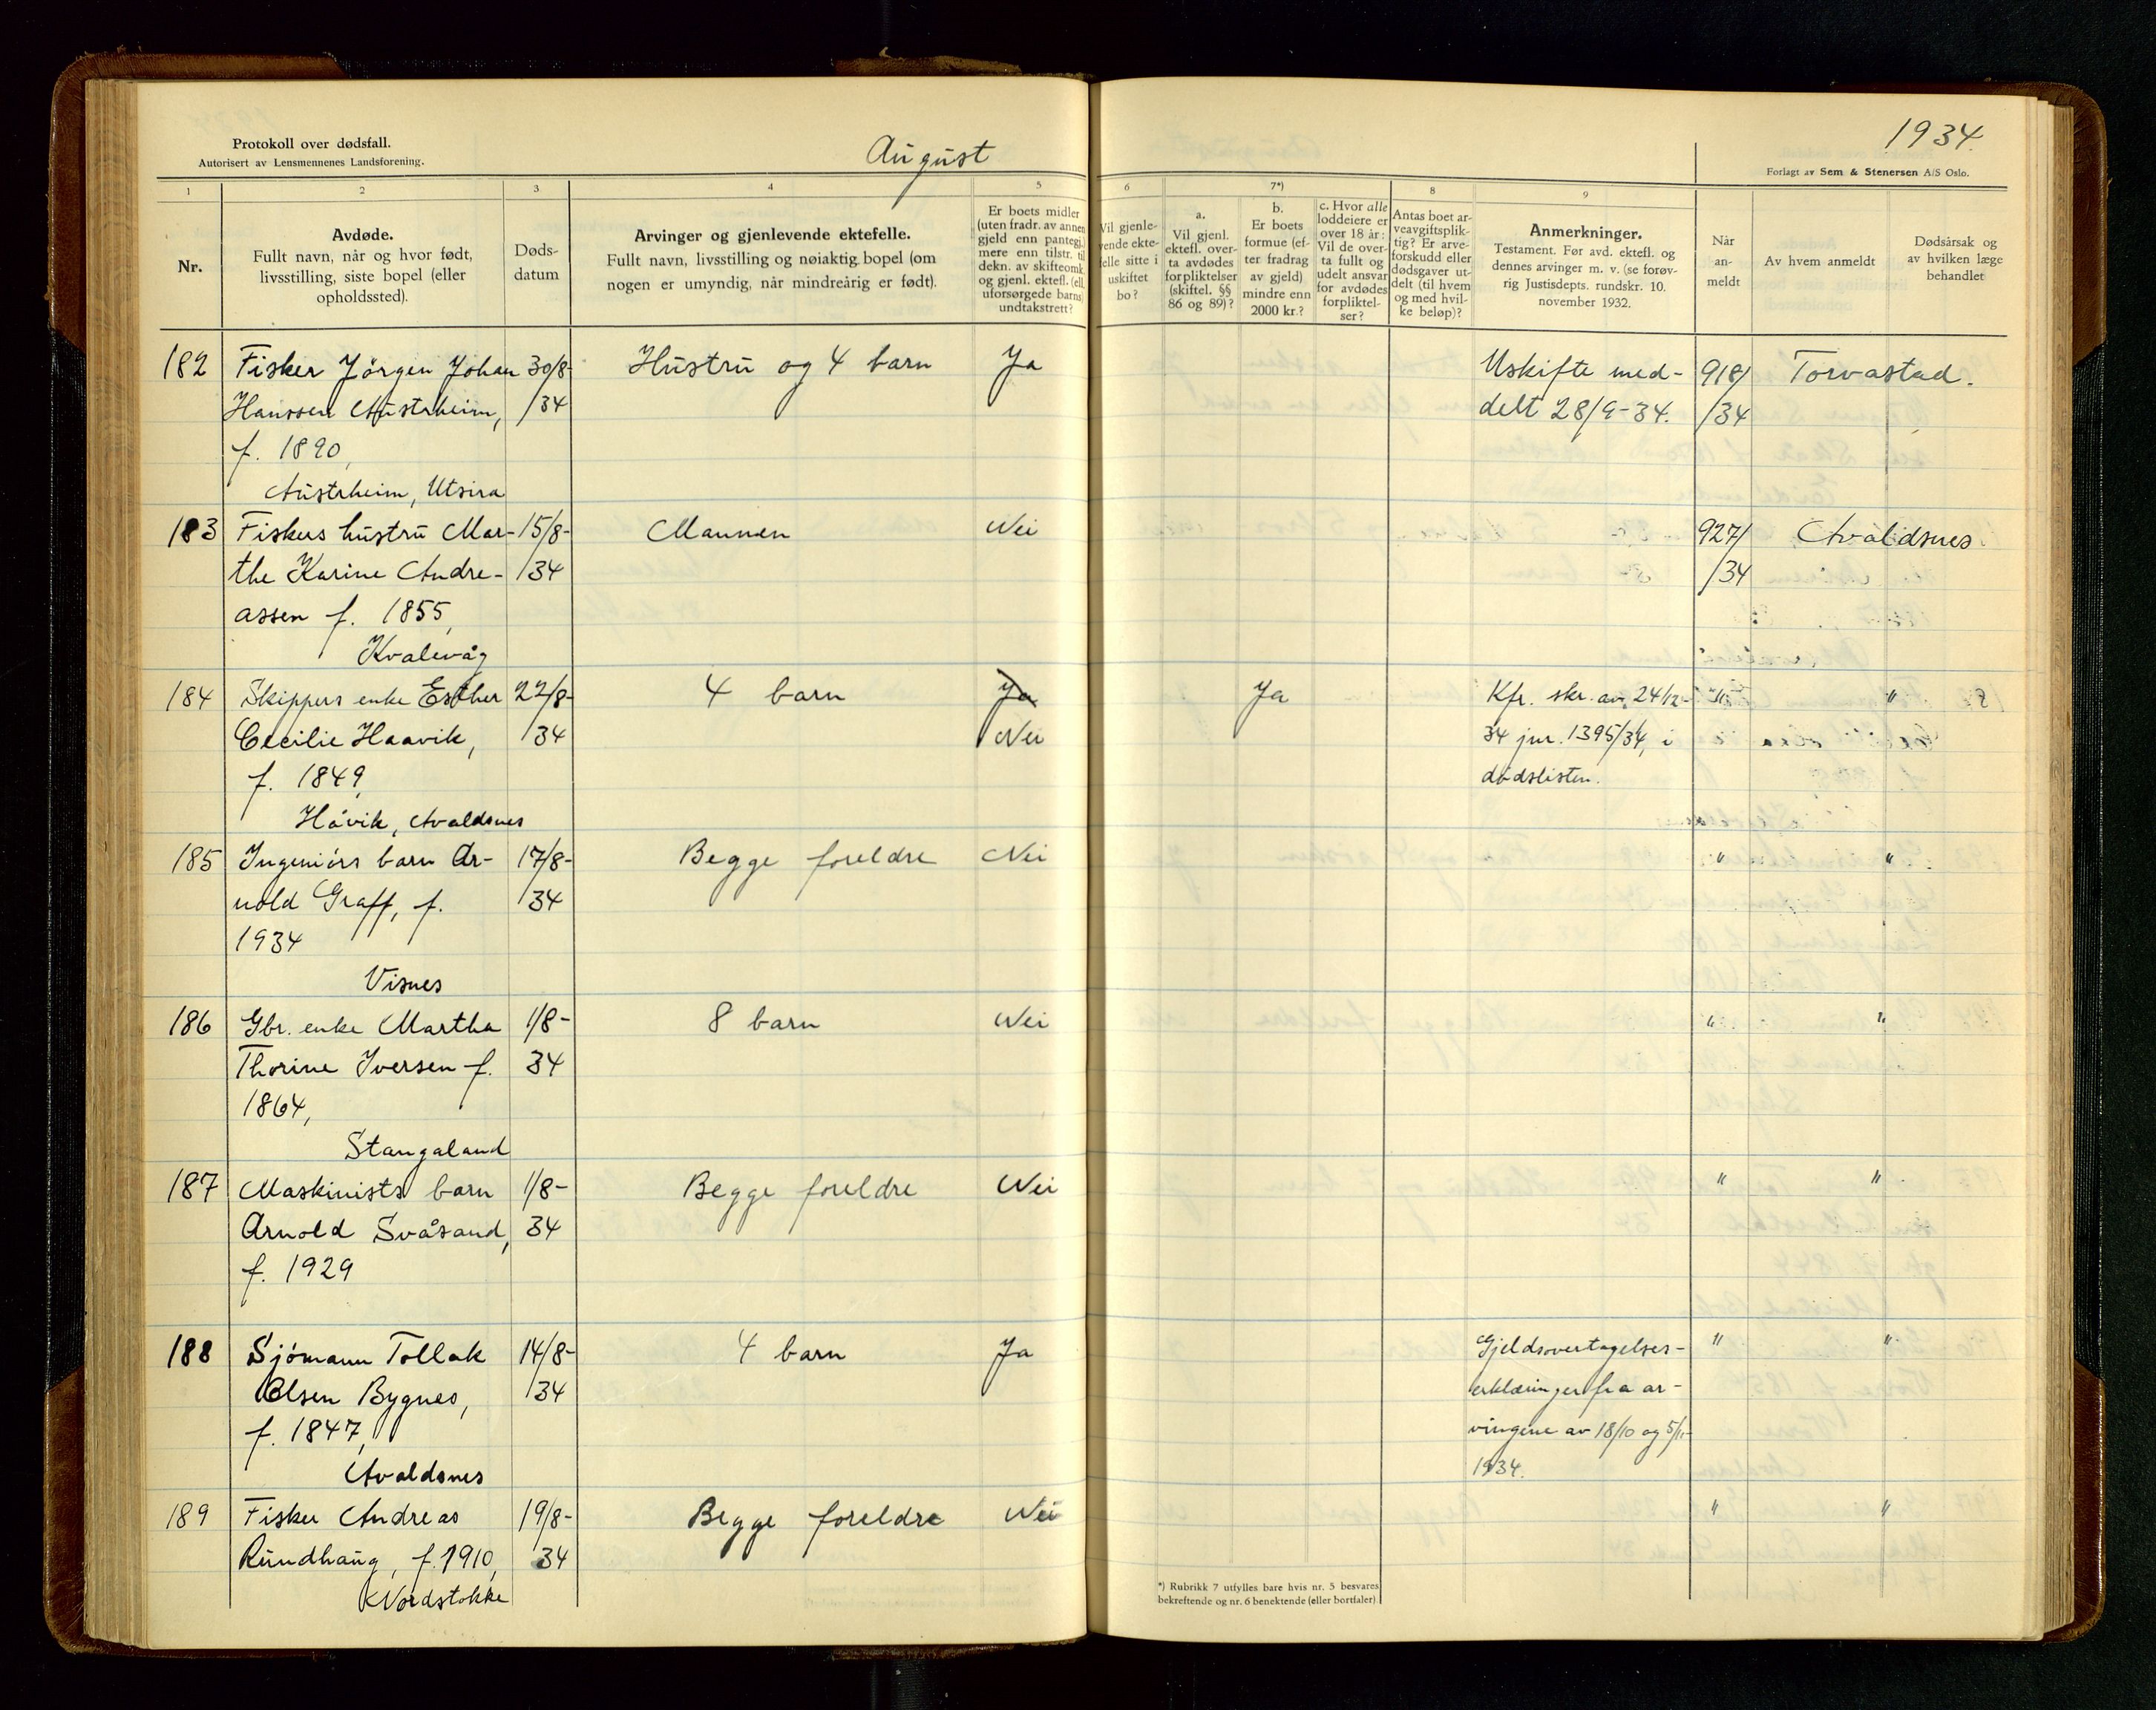 Protokoll over dødsfall.
Autorisert av Lensmennenes Landsforening.
August
1934.
Forlagt av Sem & Stenersen A/S Oslo.
1 2 3 4 5 6 7*) 8 9
Nr.
Avdøde.
Fullt navn, når og hvor født,
livsstilling, siste bopel (eller
opholdssted).
Døds-
datum
Arvinger og gjenlevende ektefelle.
Fullt navn, livsstilling og nøiaktig bopel (om
nogen er umyndig, når mindreårig er født).
Er boets midler
(uten fradr. av annen
gjeld enn pantegj.)
mere enn tilstr. til
dekn. av skifteomk.
og gjenl. ektef. (ell.
uforsørgede barns)
undtakstrett?
Vil gjenle-
vende ekte-
felle sitte i
uskiftet
bo?
a.
Vil gjenl.
ektefl. over-
ta avdødes
forpliktelser
(skiftel. §§
86 og 89)?
b.
Er boets
formue (ef-
ter fradrag
av gjeld)
mindre enn
2000 kr.?
c. Hvor alle
loddeiere er
over 18 år:
Vil de over-
ta fullt og
udelt ansvar
for avdødes
forpliktel-
ser?
Antas boet ar-
veavgiftsplik-
tig? Er arve-
forskudd eller
dødsgaver ut-
delt (til hvem
og med hvil-
ke beløp)?
Anmerkninger.
Testament. Før avd. ektefl. og
dennes arvinger m. v. (se forøv-
rig Justisdepts. rundskr. 10.
november 1932.
Når
an-
meldt
Av hvem anmeldt
Dødsårsak og
av hvilken læge
behandlet
182 Fisker Jörgen Johan 30/8- Hustru og 4 barn Ja Uskifte med- 918/ Torvastad.
Hanssen Austrheim, /34 delt 28/9-34. /34
f. 1890,
Austrheim, Utsira
183 Fiskers hustru Mar- 15/8- Mannen Nei 927/ Avaldsnes
the Karine Andre- /34 /34
assen f. 1855,
Kvalevåg
184 Skippers enke Esther 22/8- 4 barn Ja Ja Kfr. skr. av 24/12- " "
Cecilie Haavik, /34 Nei 34 jnr. 1395/34, i
f. 1849, dödslisten.
Håvik, Avaldsnes
185 Ingeniörs barn Ar- 17/8- Begge foreldre Nei " "
nold Graff, f. 34
1934
Visnes
186 Gbr. enke Martha 1/8- 8 barn Nei " "
Thorine Iversen f. 34
1864,
Stangaland
187 Maskinists barn 1/8- Begge foreldre Nei " "
Arnold Svåsand, 34
f. 1929
188 Sjömann Tollak 14/8- 4 barn Ja Gjeldsovertagelses- " "
Olsen Bygnes, /34 erklæringer fra ar-
f. 1847, vingene av 18/10 og 5/11-
Avaldsnes 1934.
189 Fisker Andreas 19/8- Begge foreldre Nei " "
Rundhaug, f. 1910, 34
Nordstokke
*) Rubrikk 7 utfylles bare hvis nr. 5 besvares
bekreftende og nr. 6 benektende (eller bortfaler).